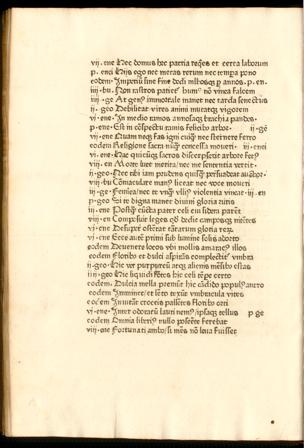 vij·ene Hec domus hec patria reqͥes et certa laborum
p·enei Hijs ego nec metas rerum nec tempa pono
eodem Imperiū sine fine dedi mltosqꝫ p annos·p·en-
iiij·bu· Non rastros patiet' hum' nō vinea falcem
iiij·ge At gen' immortale manet nec tarda senectus
ix·geo Debilitat vires animi mutatqꝫ vigorem
vi·ene·In medio ramos annosaqꝫ brachia pandes
p·ene·Est in cōspectu ramis felicibꝰ arbos· ij·ge
vi·ene Quam neqꝫ fas igni cuiqꝫ nec sternere ferro
eodem Religione sacra nūqꝫ concessa moueri· iij·enei
vi·ene·Hac quicūqꝫ sacros discerpserit arbore fet'
vij·en Morte luet merita/nec me sententia vertit
ij·geo·Nec tibi tam prudens quisqꝫ persuadeat auctor·
viij·bu Cōmaculare man' liceat nec voce moueri
iij·ge Femina/nec te vllius violentia vincat·iij·en
p·geo Si te digna manet diuini gloria ruris
vi·ene Postqꝫ cūcta pater celi cui sidera parent
vij·en Composuit leges qꝫ dedit camposqꝫ nitētes
vi·ene Desuper ostētat tātarum gloria rerum
vi·ene Ecce autē primi sub lumine solis et ortu
eodem Deuenere locos vbi mollis amaracꝰ illos
eodem Floribꝰ et dulci aspirās complectitꝰ vmbra
ij·geo·Hic ver purpureū atqꝫ alienis mēsibꝰ estas
iiij·geo Hic liquidi fōtes hic celi tēpore certo
eodem Dulcia mella premūt hic cādida populꝰ antro
eodem Imminet/et lēte texūt vmbracula vites
eodem Inuitāt croceis floribꝰ orti
vi·ene·Inter odoratū lauri nemꝰ ipsaqꝫ tellus p ge
eodem Omnia liberiꝰ nullo poscēte ferebat
viij·ene Fortunati ambo/si mēs nō leua fuisset